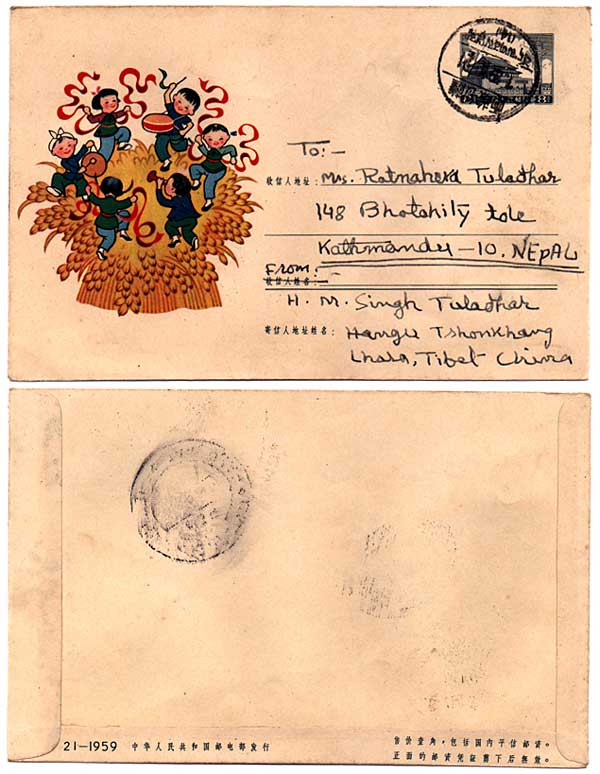 8
To:-
收信人地址: Mrs. Ratnahera Tuladhar
148 Bhotahity tole
Kathmandu-10. NEPAL
From:-
收信人姓名:
H. M. Singh Tuladhar
寄信人地址姓名: Hangu Tshonkhang
Lhasa, Tibet China
21—1959 中华人民共和国邮电部发行
售价壹角,包括国内平信邮资。
正面的邮资凭证剪下后无效。